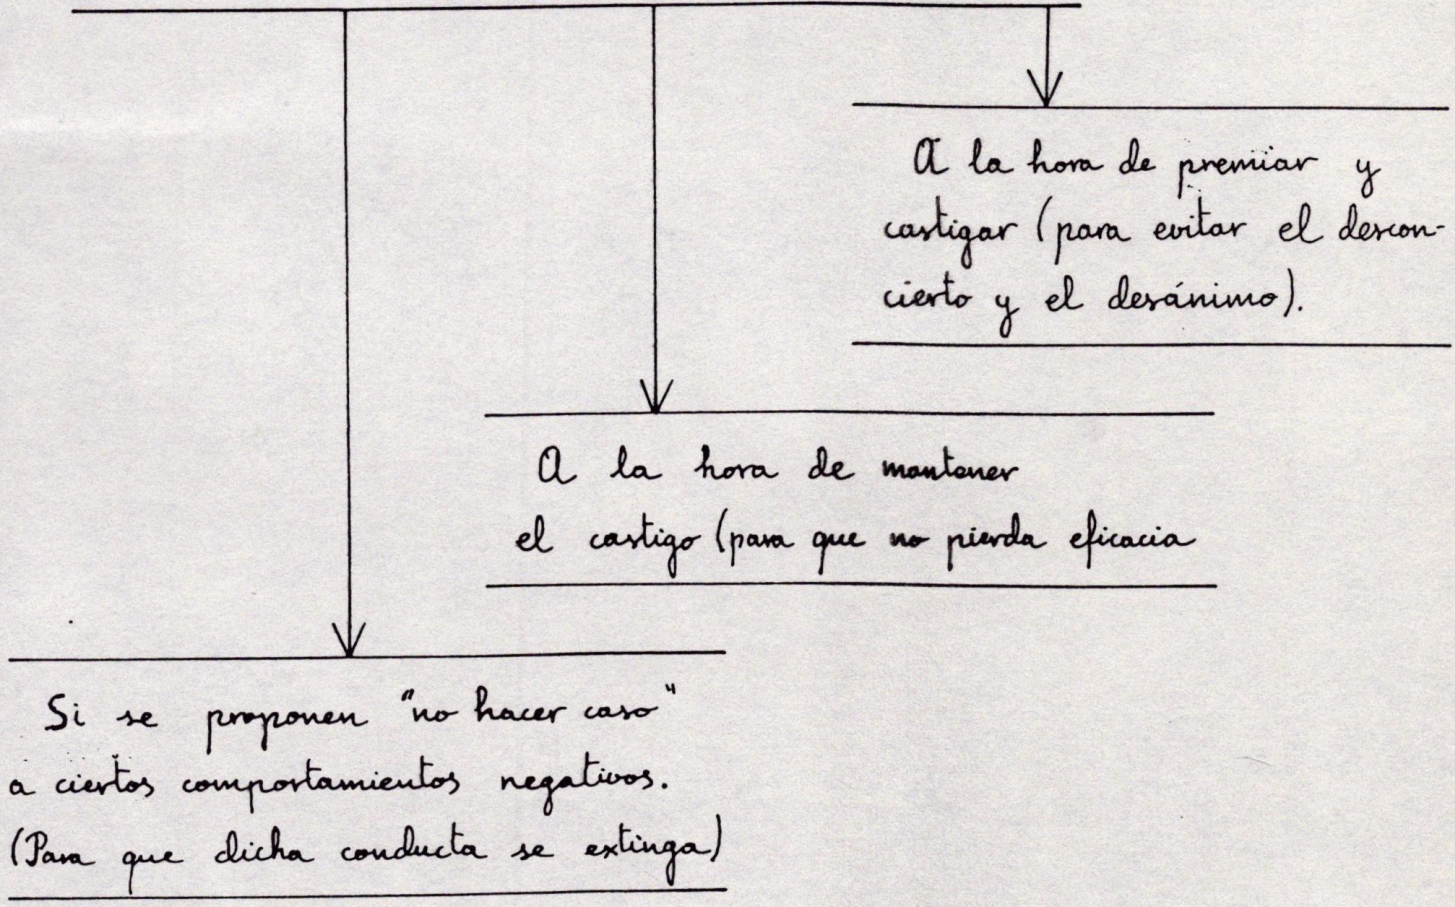 A la hora de premiar y
castigar (para evitar el descon-
cierto y el desánimo).
A la hora de mantener
el castigo (para que no pierda eficacia
Si se proponen "no hacer caso"
a ciertos comportamientos negativos.
(Para que dicha conducta se extinga)